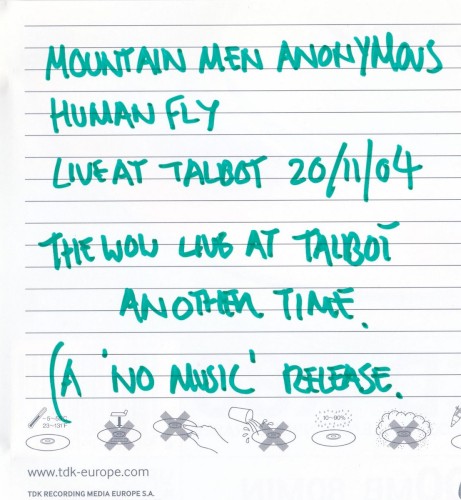 MOUNTAIN MEN ANONYMOUS
HUMAN FLY
LIVE AT TALBOT 20/11/04
THE WOW LIVE AT TALBOT
ANOTHER TIME.
(A 'NO MUSIC' RELEASE.
10~90%
www.tdk-europe.com
TDK RECORDING MEDIA EUROPE S.A.